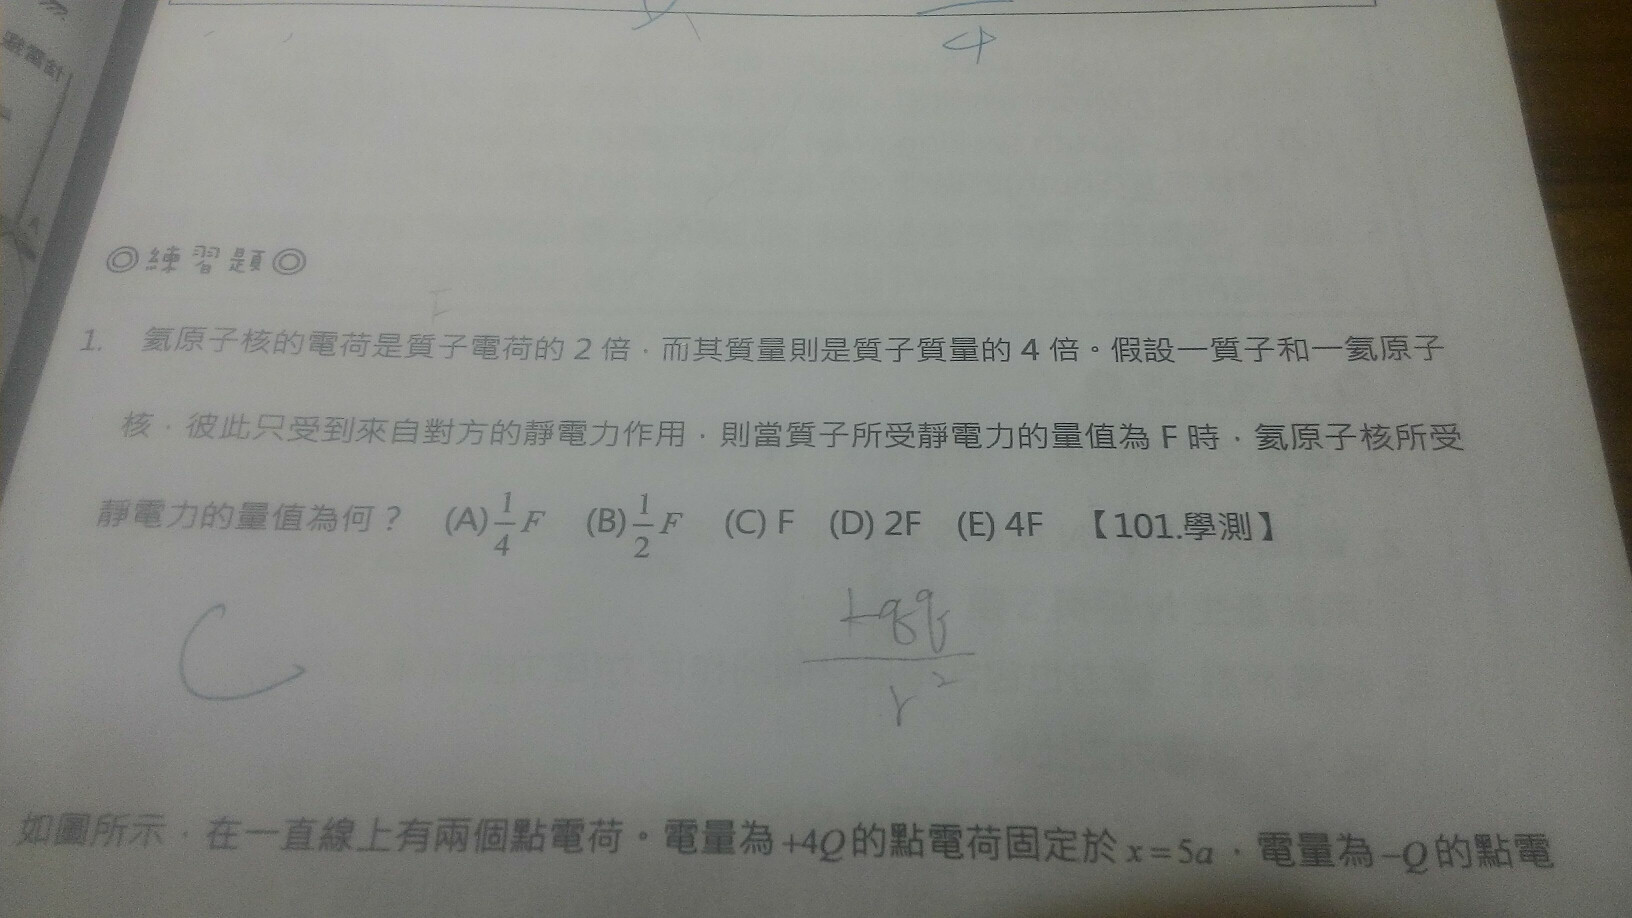 4
◎練習題◎
1. 氦原子核的電荷是質子電荷的 2 倍，而其質量則是質子質量的 4 倍。假設一質子和一氦原子
核，彼此只受到來自對方的靜電力作用，則當質子所受靜電力的量值為 F 時，氦原子核所受
靜電力的量值為何？ (A) 1/4 F (B) 1/2 F (C) F (D) 2F (E) 4F 【101.學測】
C
r²
如圖所示，在一直線上有兩個點電荷。電量為 +4Q 的點電荷固定於 x = 5a，電量為 −Q 的點電